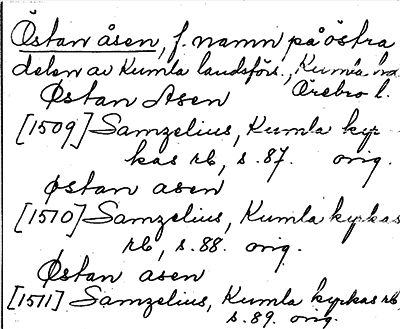 Östan åsen, f. namn på östra
delen av Kumla landsförs., Kumla hd
Örebro l.
Østan Asen
[1509] Samzelius, Kumla kyr
kas rb, s. 87. orig.
Østan asen
[1510] Samzelius, Kumla kyrkas
rb, s. 88. orig.
Østan asen
[1511] Samzelius, Kumla kyrkas rb,
s. 89. orig.